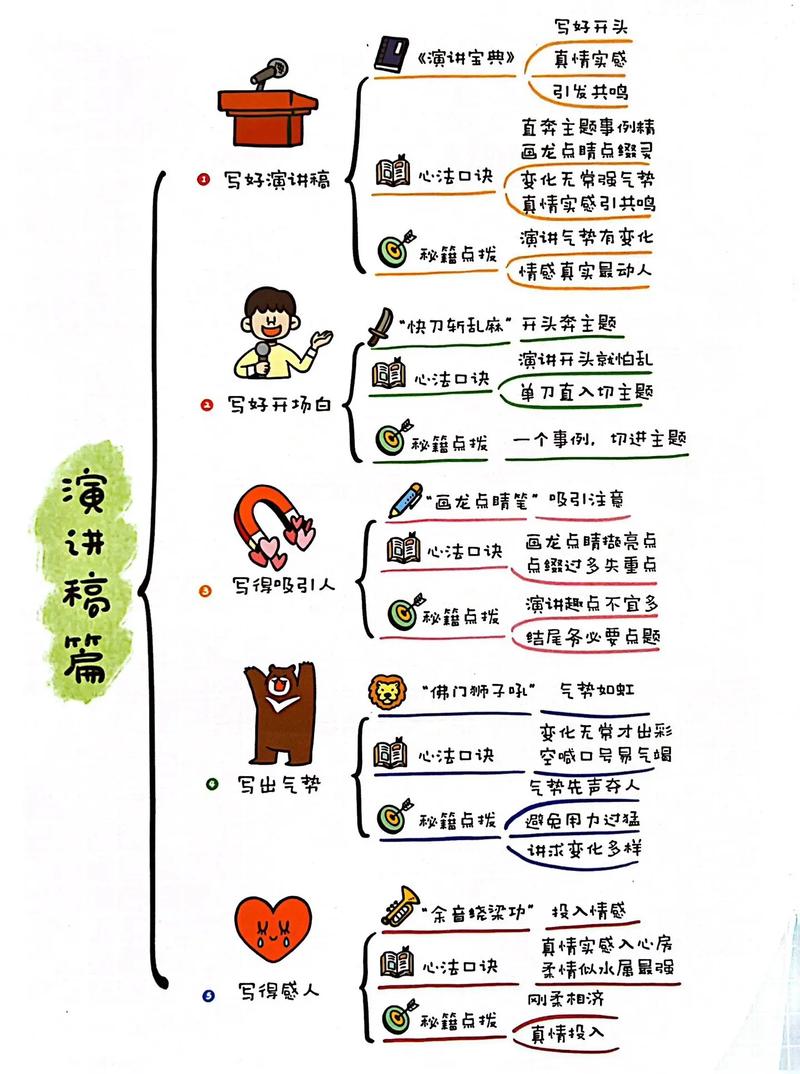 演讲稿篇
1 写好演讲稿
《演讲宝典》
写好开头
真情实感
引发共鸣
心法口诀
直奔主题事例精
画龙点睛点缀灵
变化无常强气势
真情实感引共鸣
秘籍点拨
演讲气势有变化
情感真实最动人
2 写好开场白
“快刀斩乱麻” 开头奔主题
心法口诀
演讲开头就怕乱
单刀直入切主题
秘籍点拨
一个事例，切进主题
3 写得吸引人
“画龙点睛笔” 吸引注意
心法口诀
画龙点睛撷亮点
点缀过多失重点
秘籍点拨
演讲趣点不宜多
结尾务必要点题
4 写出气势
“佛门狮子吼” 气势如虹
心法口诀
变化无常才出彩
空喊口号易气竭
秘籍点拨
气势先声夺人
避免用力过猛
讲求变化多样
5 写得感人
“余音绕梁功” 投入情感
心法口诀
真情实感入心房
柔情似水属最强
秘籍点拨
刚柔相济
真情投入